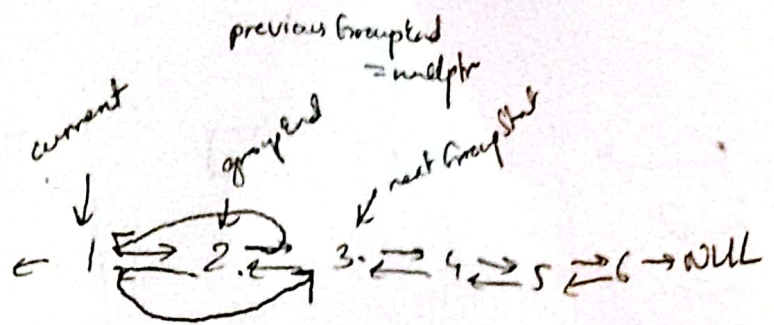 previousGroupEnd
= nullptr
current
groupEnd
nextGroupStart
1 2 3. 4 5 6 → NULL